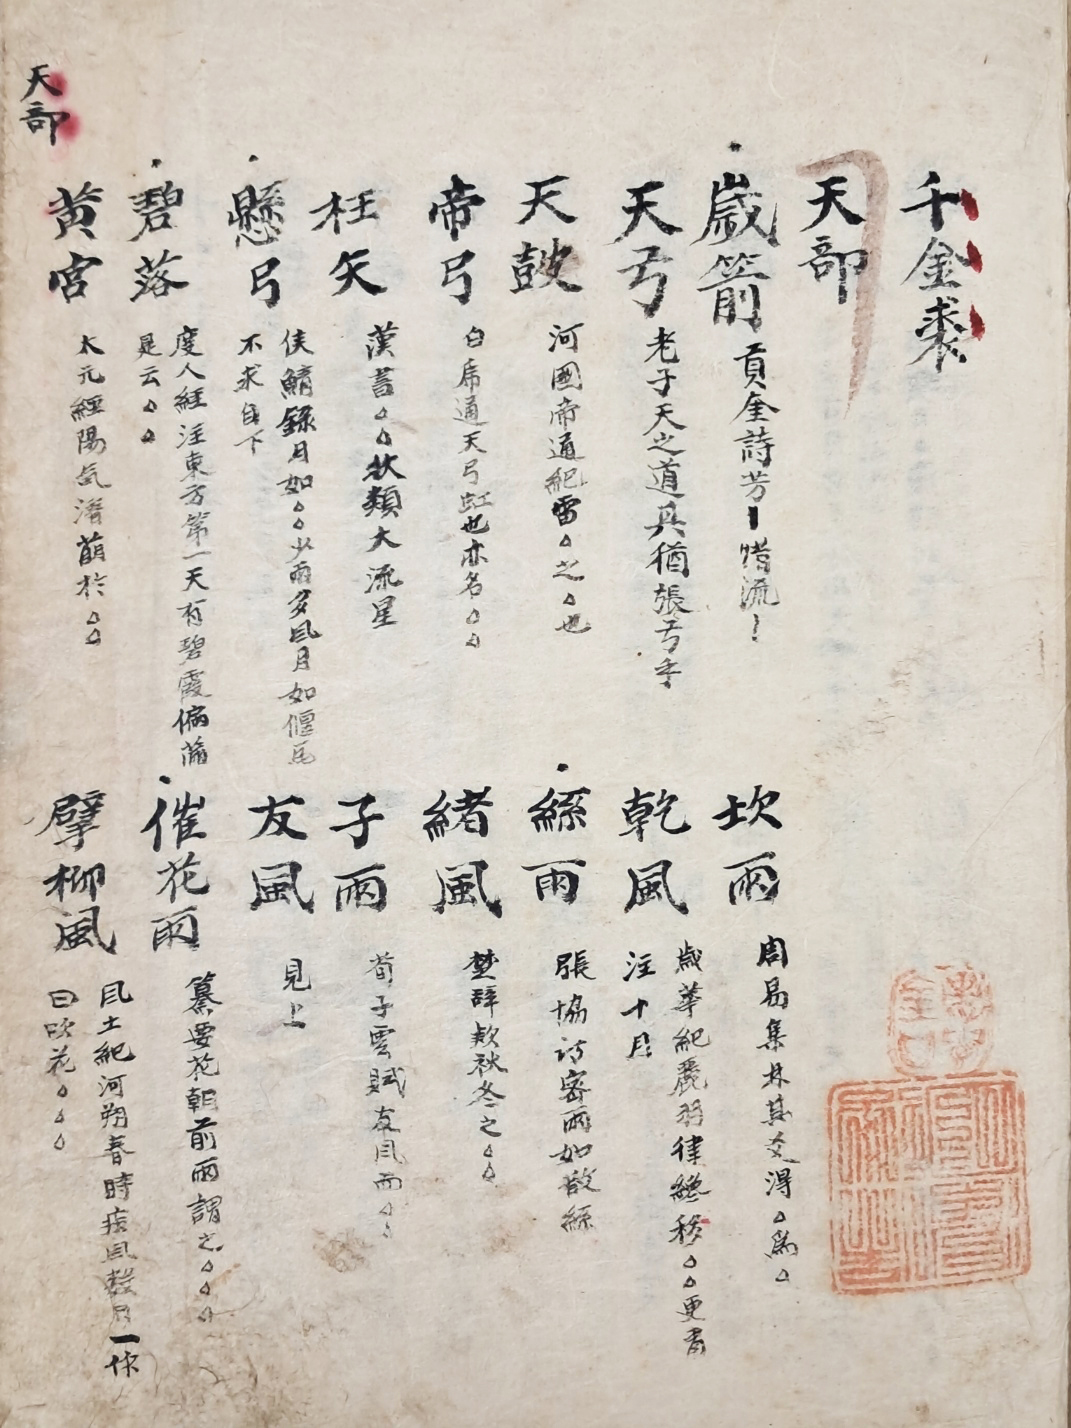 千金裘
天部
歲箭
貢奎詩芳
流
天弓
老子天之道其猶張弓乎
天鼓
河圖帝通紀雷△之△也
帝弓
白席通天弓虹也亦名△△
枉矢
漢書△△狀類大流星
懸弓
侯鯖錄月如△△少雨多風月如偃瓦
不求自下
碧落
度人經注東方第一天有碧霞徧滿
是云△△
黃宮
太元經陽气潛萠於△△
坎雨
周易集林其爻得△為△
乾風
歲華紀麗羽律纔移△△更肅
注十月
絲雨
張協詩密雨如散絲
緒風
楚辭欸秋冬之△△
子雨
荀子雲賦友風而△△
友風
見上
催花雨
纂要花朝前雨謂之△△△
擘柳風
風土紀河朔春時疾風數月一作
曰吹花△△△
天部